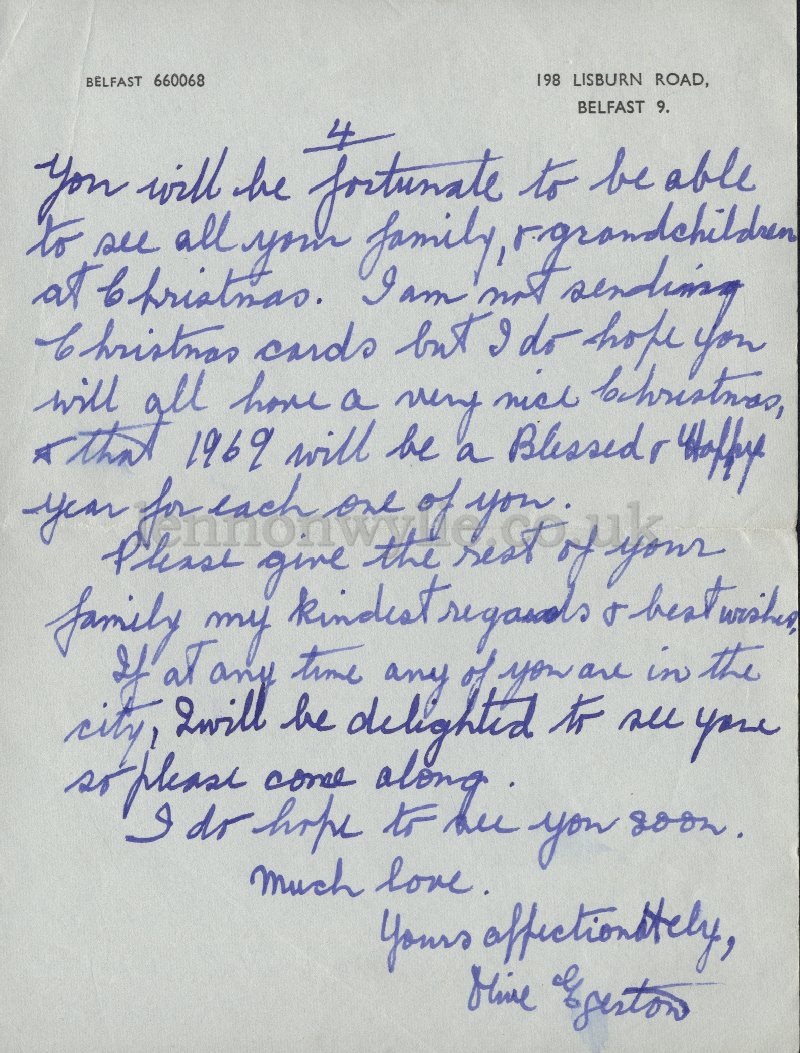 BELFAST 660068
198 LISBURN ROAD,
BELFAST 9.
4
You will be fortunate to be able
to see all your family, & grandchildren
at Christmas. I am not sending
Christmas cards but I do hope you
will all have a very nice Christmas,
& that 1969 will be a Blessed & Happy
year for each one of you.
lennonwylie.co.uk
Please give the rest of your
family my kindest regards & best wishes.
If at any time any of you are in the
city, I will be delighted to see you
so please come along.
I do hope to see you soon.
Much love.
Yours affectionately,
Olive Egerton